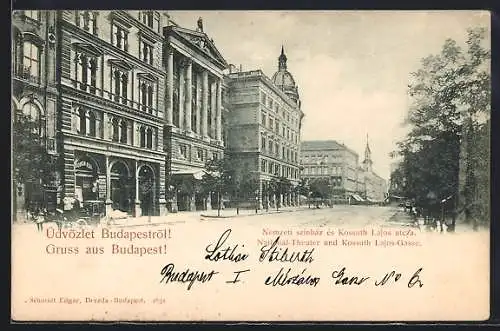 Üdvözlet Budapestről!
Gruss aus Budapest!
Nemzeti szinház és Kossuth Lajos utcza.
National-Theater und Kossuth Lajos-Gasse.
Budapest I
és No 6
Schmidt Edgar, Dresda-Budapest.